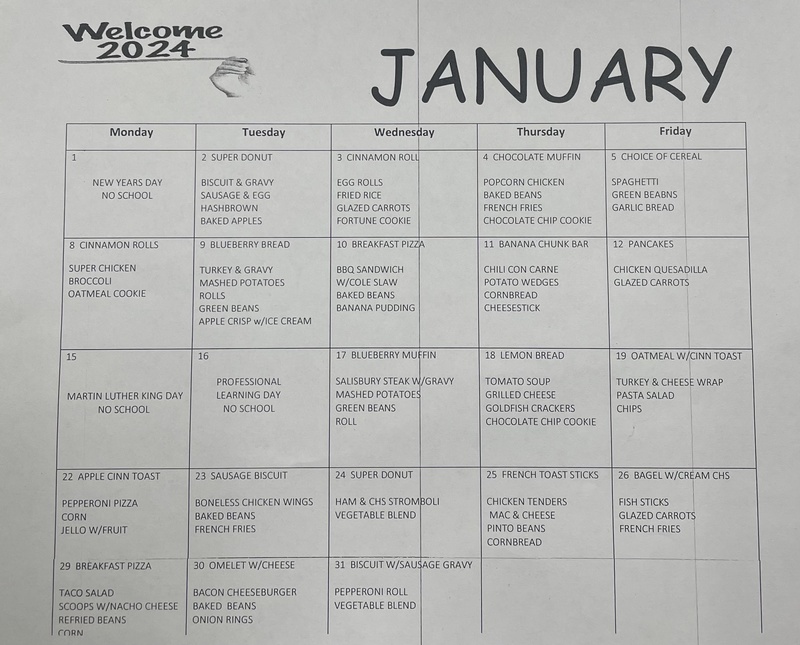 Welcome
2024
JANUARY
Monday Tuesday Wednesday Thursday Friday
1
NEW YEARS DAY
NO SCHOOL
2 SUPER DONUT
BISCUIT & GRAVY
SAUSAGE & EGG
HASHBROWN
BAKED APPLES
3 CINNAMON ROLL
EGG ROLLS
FRIED RICE
GLAZED CARROTS
FORTUNE COOKIE
4 CHOCOLATE MUFFIN
POPCORN CHICKEN
BAKED BEANS
FRENCH FRIES
CHOCOLATE CHIP COOKIE
5 CHOICE OF CEREAL
SPAGHETTI
GREEN BEABNS
GARLIC BREAD
8 CINNAMON ROLLS
SUPER CHICKEN
BROCCOLI
OATMEAL COOKIE
9 BLUEBERRY BREAD
TURKEY & GRAVY
MASHED POTATOES
ROLLS
GREEN BEANS
APPLE CRISP w/ICE CREAM
10 BREAKFAST PIZZA
BBQ SANDWICH
W/COLE SLAW
BAKED BEANS
BANANA PUDDING
11 BANANA CHUNK BAR
CHILI CON CARNE
POTATO WEDGES
CORNBREAD
CHEESESTICK
12 PANCAKES
CHICKEN QUESADILLA
GLAZED CARROTS
15
MARTIN LUTHER KING DAY
NO SCHOOL
16
PROFESSIONAL
LEARNING DAY
NO SCHOOL
17 BLUEBERRY MUFFIN
SALISBURY STEAK W/GRAVY
MASHED POTATOES
GREEN BEANS
ROLL
18 LEMON BREAD
TOMATO SOUP
GRILLED CHEESE
GOLDFISH CRACKERS
CHOCOLATE CHIP COOKIE
19 OATMEAL W/CINN TOAST
TURKEY & CHEESE WRAP
PASTA SALAD
CHIPS
22 APPLE CINN TOAST
PEPPERONI PIZZA
CORN
JELLO W/FRUIT
23 SAUSAGE BISCUIT
BONELESS CHICKEN WINGS
BAKED BEANS
FRENCH FRIES
24 SUPER DONUT
HAM & CHS STROMBOLI
VEGETABLE BLEND
25 FRENCH TOAST STICKS
CHICKEN TENDERS
MAC & CHEESE
PINTO BEANS
CORNBREAD
26 BAGEL W/CREAM CHS
FISH STICKS
GLAZED CARROTS
FRENCH FRIES
29 BREAKFAST PIZZA
TACO SALAD
SCOOPS W/NACHO CHEESE
REFRIED BEANS
CORN
30 OMELET W/CHEESE
BACON CHEESEBURGER
BAKED BEANS
ONION RINGS
31 BISCUIT W/SAUSAGE GRAVY
PEPPERONI ROLL
VEGETABLE BLEND